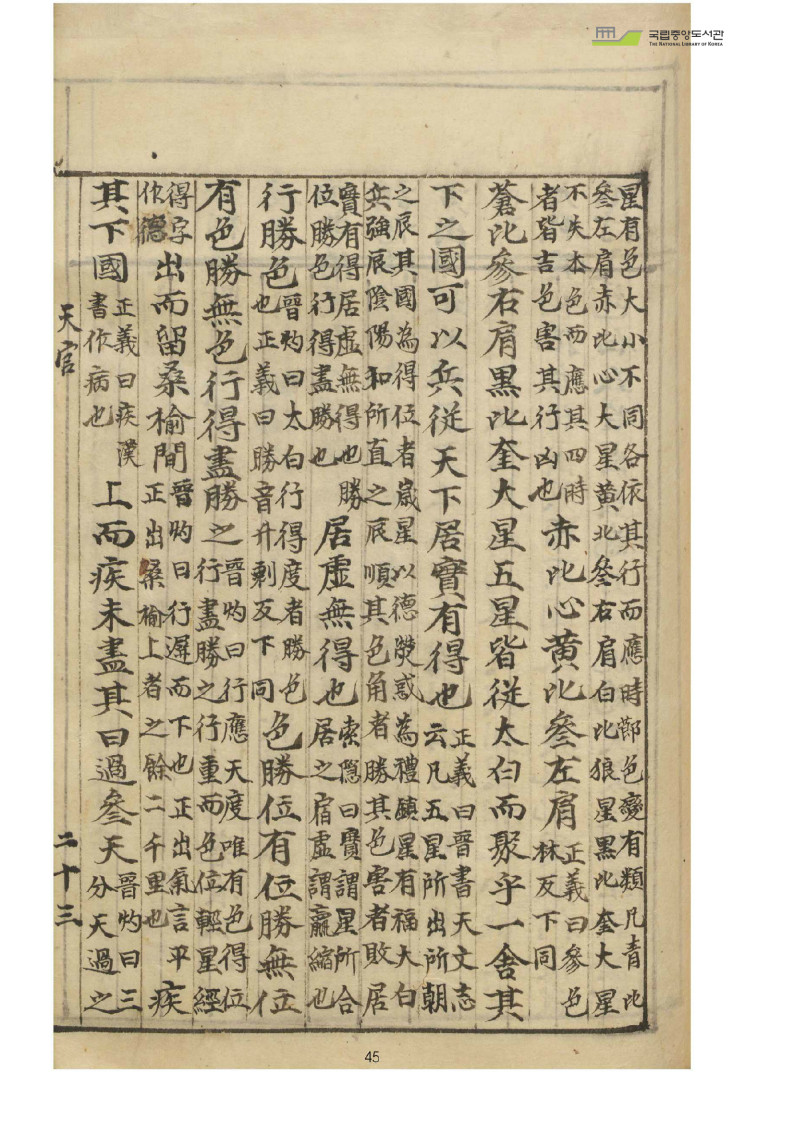 국립중앙도서관
THE NATIONAL LIBRARY OF KOREA
星有色大小不同各依其行而應時節色變有類凡青比
參左肩赤比心大星黃比參右肩白比狼星黑比奎大星
不失本色而應其四時
者皆吉色害其行凶也
赤比心黃比參左肩
正義曰參色
林反下同
蒼比參右肩黑比奎大星五星皆從太白而聚乎一舍其
下之國可以兵從天下居實有得也
正義曰晉書天文志
云凡五星所出所朝
之辰其國為得位者歲星以德熒惑為禮鎮星有福大白
兵強辰陰陽和所直之辰順其色角者勝其色害者敗居
實有得居虛無得也勝
位勝色行得盡勝也
居虛無得也
索隱曰實謂星所合
居之宿虛謂贏縮也
行勝色
晉灼曰太白行得度者勝色
也正義曰勝音升剩反下同
色勝位有位勝無位
有色勝無色行得盡勝之
晉灼曰行應天度唯有色得位
行盡勝之行重而色位輕星經
得字
作德
出而留桑榆間
晉灼曰行遲而下也正出氣言平
正出桑榆上者之餘二千里也
疾
其下國
正義曰疾漢
書作病也
上而疾未盡其日過參天
晉灼曰三
分天過之
天官
二十三
45